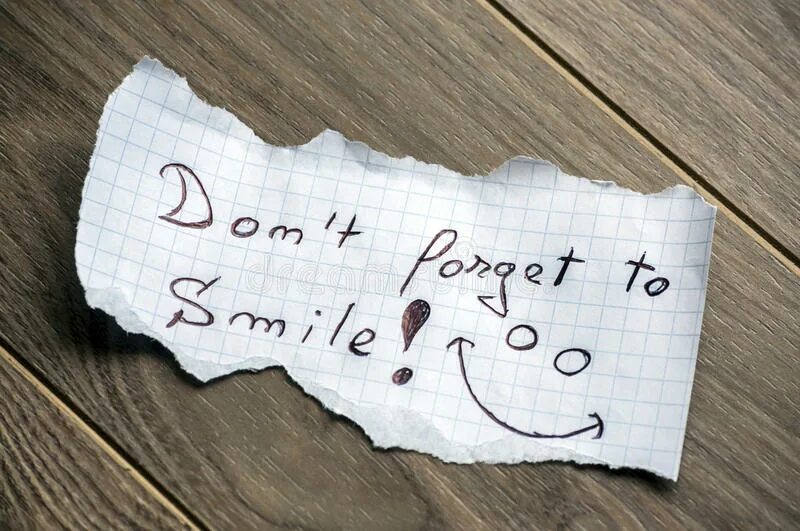 Don't forget to
Smile!
dreamstime